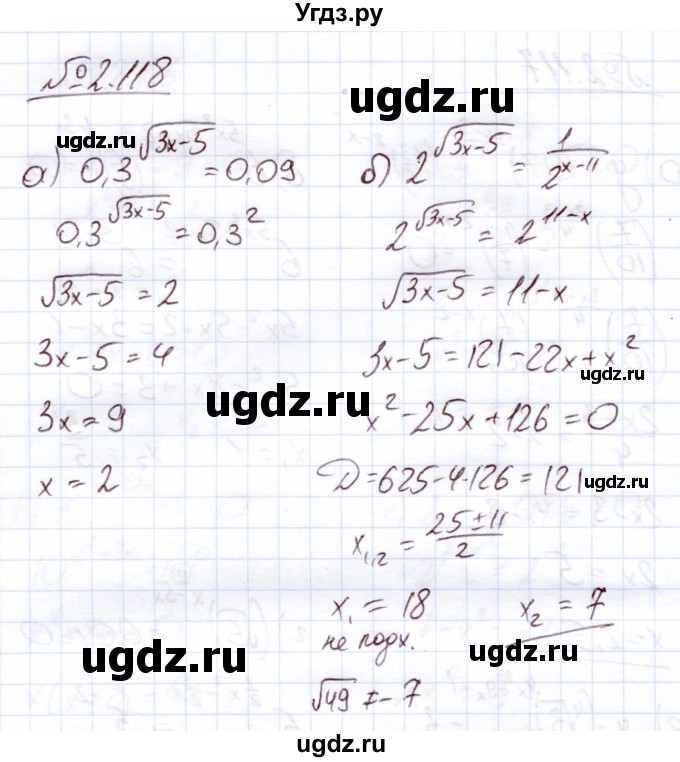 Угдз.ру
№2.118
а) 0,3^√(3x-5) = 0,09
0,3^√(3x-5) = 0,3^2
√(3x-5) = 2
3x-5=4
3x=9
x=2
б) 2^√(3x-5) = 1/2^(x-11)
2^√(3x-5) = 2^(11-x)
√(3x-5) = 11-x
3x-5=121-22x+x^2
x^2-25x+126=0
D=625-4·126=121
x1,2 = (25±11)/2
x1=18 x2=7
не подх.
√49 ≠ -7
ugdz.ru
ugdz.ru
ugdz.ru
ugdz.ru
ugdz.ru
ugdz.ru
ugdz.ru
ugdz.ru